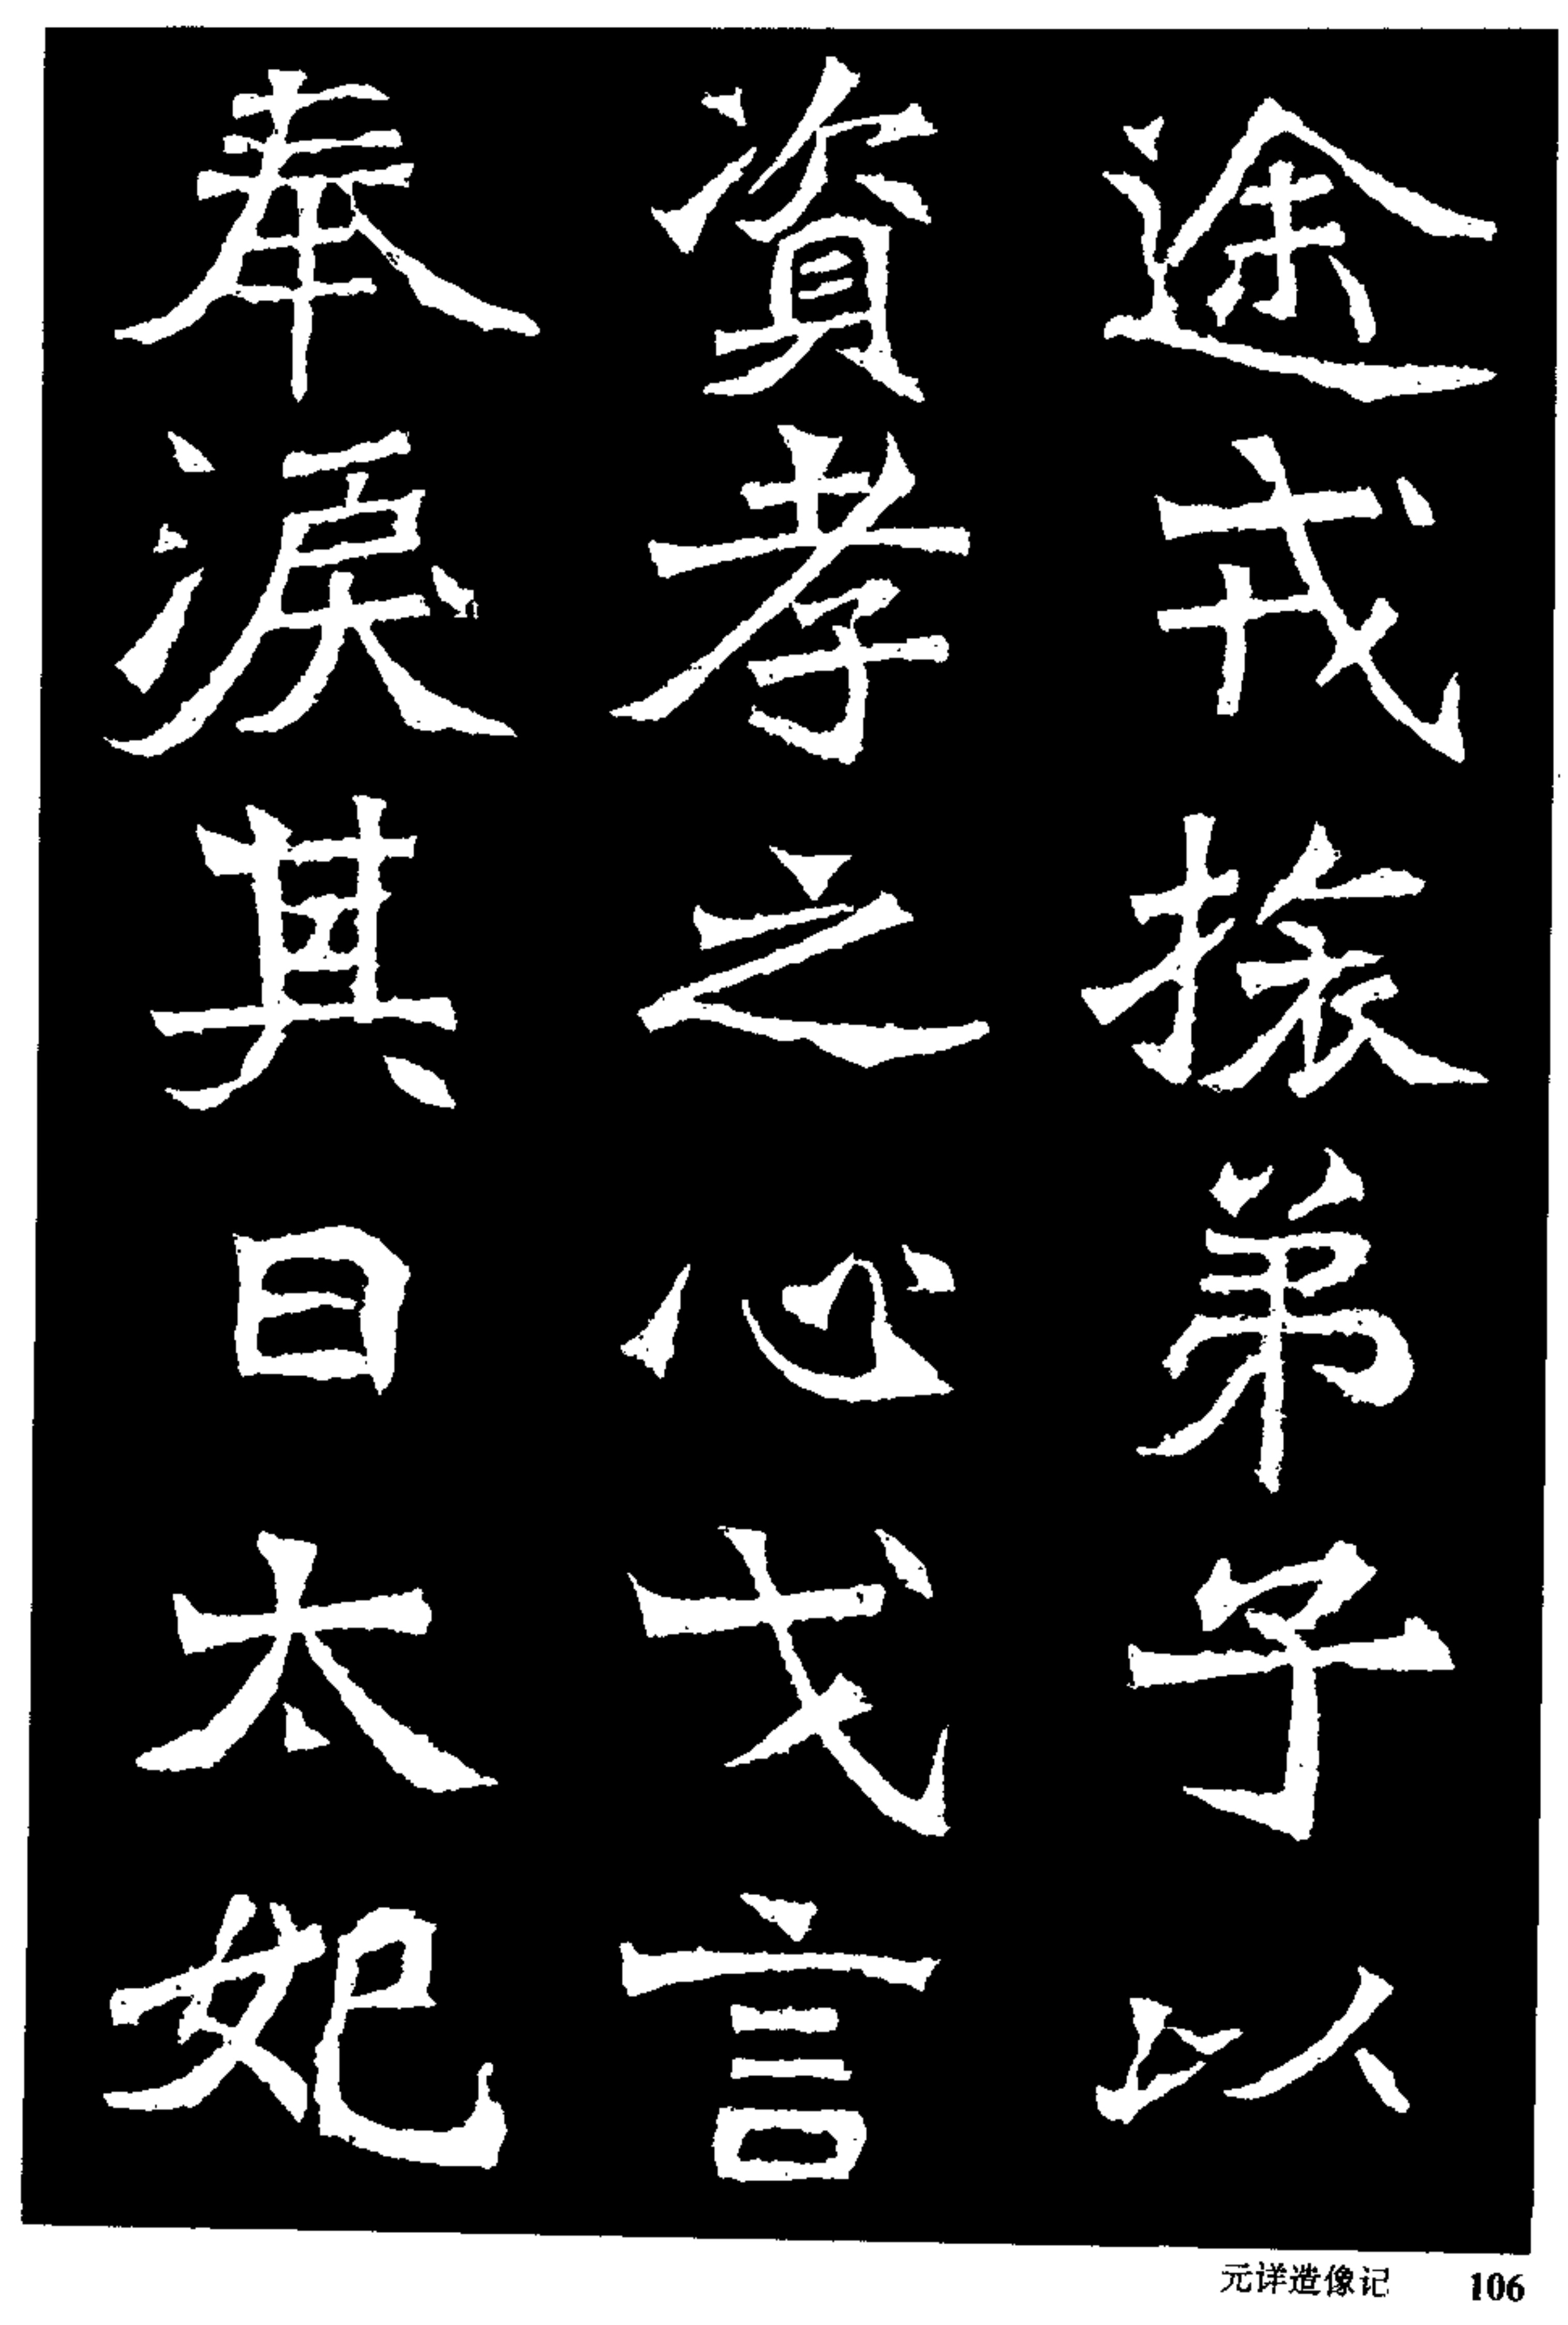 途戎旅弟子以
資孝之心戈言
奉淚其日太妃
元详造像记 106